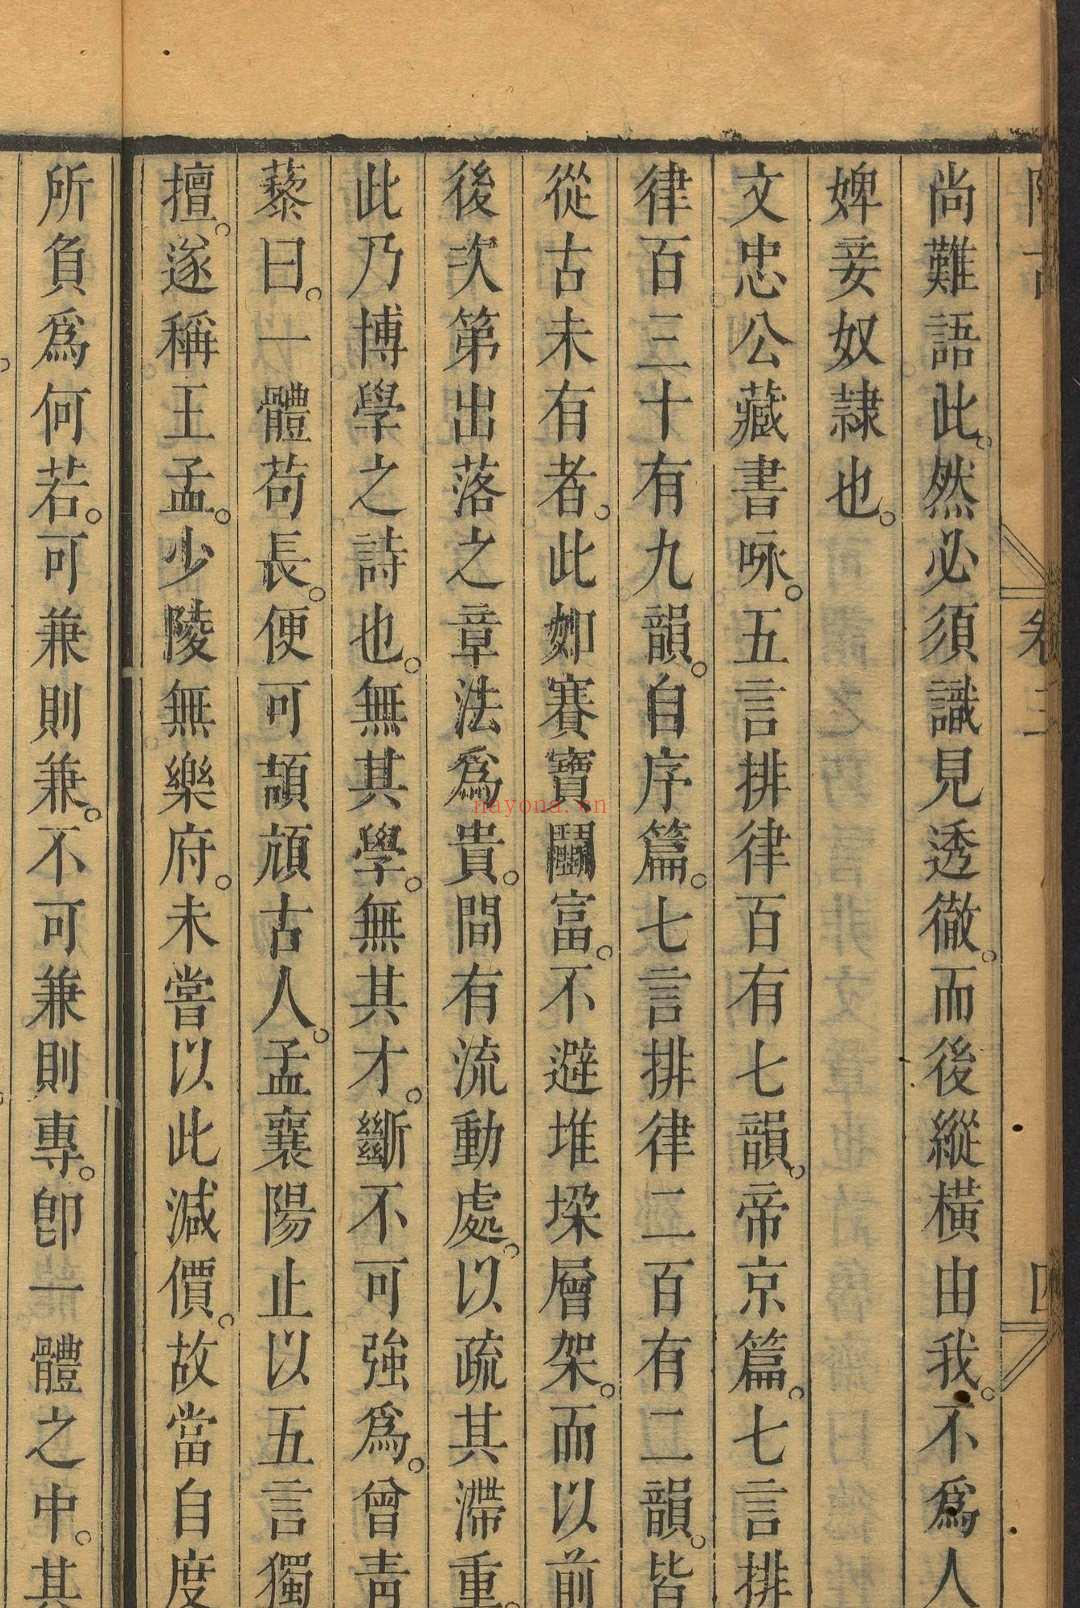 尚難語此。然必須識見透徹。而後縱橫由我。不爲人
婢妾奴隷也。
文忠公藏書咏。五言排律百有七韻。帝京篇。七言排
律百三十有九韻。自序篇。七言排律二百有二韻。皆
從古未有者。此如賽寶鬭富。不避堆垜層架。而以前
後次第出落之章法爲貴。間有流動處。以疏其滯重。
此乃博學之詩也。無其學。無其才。斷不可強爲。曾青
藜曰。一體苟長。便可頡頏古人。孟襄陽止以五言獨
擅。遂稱王孟。少陵無樂府。未嘗以此減價。故當自度
所負爲何若。可兼則兼。不可兼則專。卽一體之中。其
卷三
四
nayona.cn